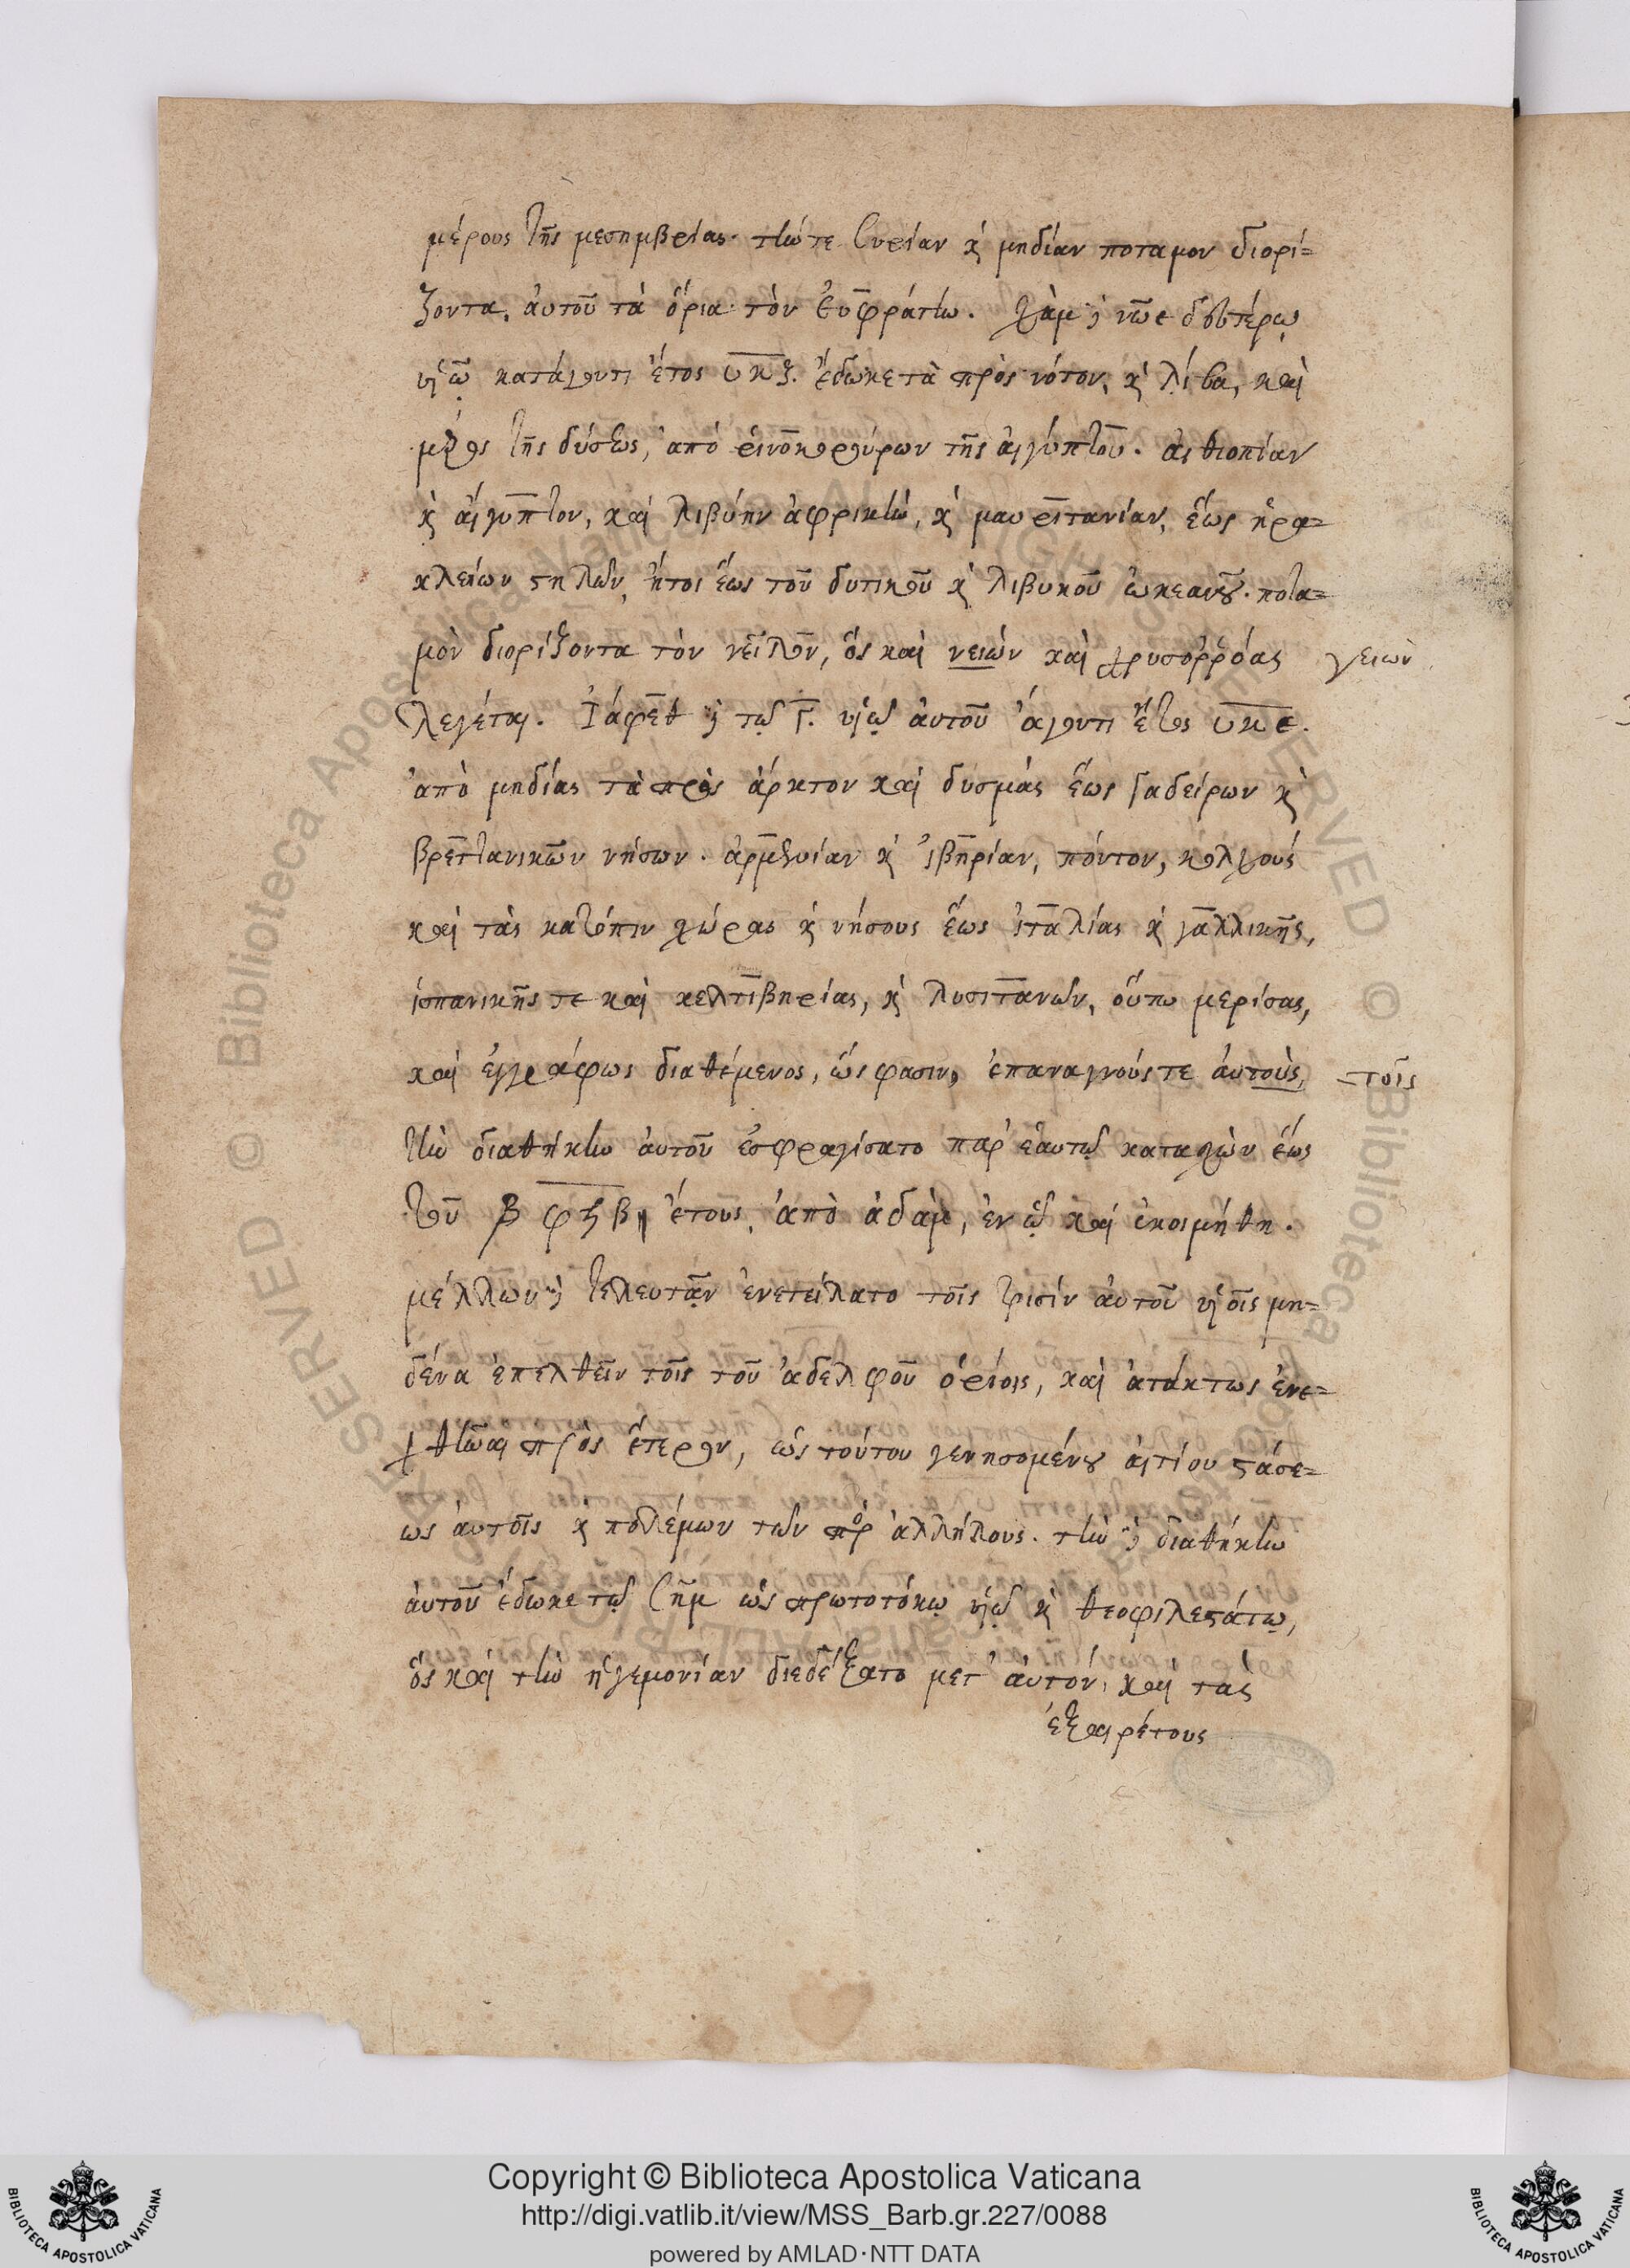 μέρους τῆς μεσημβρίας· τήν τε Συρίαν κ̀ μηδίαν ποταμον διορί=
ζοντα, ἀυτοῦ τὰ ὅρια· τὸν ἐυφράτην. χὰμ δὲ νῶε δευτέρῳ
υἱῷ κατάγοντι ἔτος υκζ. ἔδωκε τὰ πρὸς νότον, κ̀ λίβα, καὶ
μέρος τῆς δύσεως, ἀπό ῥινοκορούρων τῆς ἀιγύπτου. ἀιθιοπίαν
κ̀ ἀίγυπτον, καὶ λιβύην ἀφρικὴν, κ̀ μαυριτανίαν, ἕως ἡρα=
κλείων στηλῶν, ἤτοι ἕως τοῦ δυτικοῦ κ̀ λιβυκοῦ ὠκεανοῦ. ποτα=
μὸν διορίζοντα τὸν νεῖλον, ὅς καὶ νειών καὶ χρυσοῤῥόας γειὼν
λεγέται. Ἰάφεθ δὲ τῷ γ. υἱῷ ἀυτοῦ ἄγοντι ἔτος υκε.
ἀπὸ μηδίας τὰ πρὸς ἄρκτον καὶ δυσμάς ἕως γαδείρων κ̀
βρεττανικῶν νήσων. ἀρμενίαν κ̀ ἰβηρίαν, πόντον, κόλχους
καὶ τὰς κατόπιν χώρας κ̀ νήσους ἕως ἰταλίας κ̀ γαλλικῆς,
ἰσπανικῆς τε καὶ κελτιβηρίας, κ̀ λυσιτανῶν, ὅυτω μερίσας,
καὶ ἐγγράφως διαθέμενος, ὥς φασιν, ἐπαναγνούς τε ἀυτοὺς, -τοῖς
τὴν διαθήκην ἀυτοῦ ἐσφραγίσατο παρ' ἑαυτῷ κατασχὼν ἕως
τοῦ β φξβ ἔτους, ἀπὸ ἀδὰμ, ἐν ᾧ καὶ ἐκοιμήθη.
μέλλων δὲ τελευτᾷν ἐνετείλατο τοῖς τρισίν ἀυτοῦ υἱοῖς μη=
δένα ἐπελθεῖν τοῖς τοῦ ἀδελφοῦ ὁρίοις, καὶ ἀτάκτως ἐνε=
χθῆναι πρὸς ἕτερον, ὡς τούτου γενησομένου ἀιτίου στάσε=
ως ἀυτοῖς κ̀ πολέμων τῶν πρὸ ἀλλήλους. τὴν δὲ διαθήκην
ἀυτοῦ ἔδωκε τῷ Σῆμ ὡς πρωτοτόκῳ υἱῷ κ̀ θεοφιλεστάτῳ,
ὃς καὶ τὴν ἡγεμονίαν διεδέξατο μετ' ἀυτόν, καὶ τὰς
ἐξαιρέτους
Copyright © Biblioteca Apostolica Vaticana
http://digi.vatlib.it/view/MSS_Barb.gr.227/0088
powered by AMLAD·NTT DATA